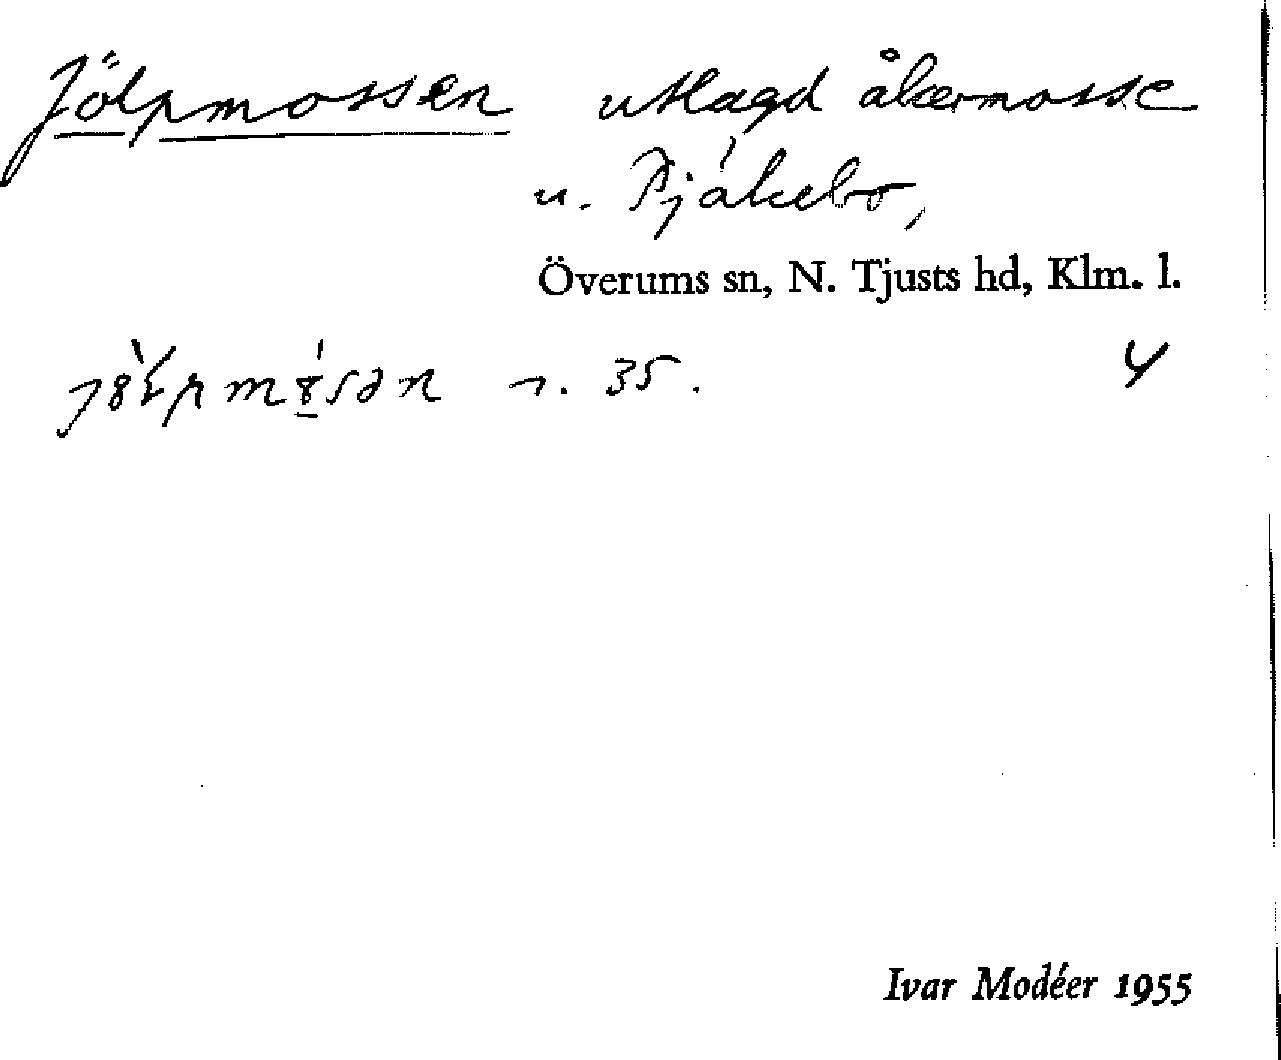 Jölpmossen utlagd åkermosse
u. Pjákebo,
Överums sn, N. Tjusts hd, Klm. l.
35. 4
Ivar Modéer 1955